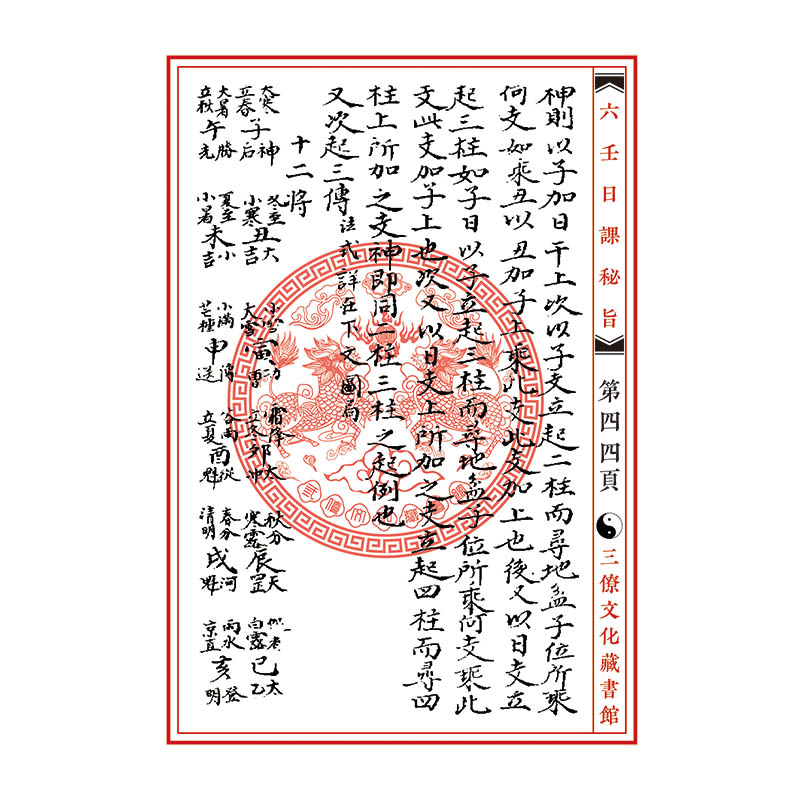 六壬日課秘旨
第四四頁
三僚文化藏書館
神則以子加日干上次以子支立起二柱而尋地盆子位所乘
何支如乘丑以丑加子上乘此支此支加上也後又以日支立
起三柱如子日以子立起三柱而尋地盆子位所乘何支乘此
支此支加子上也次又以日支上所加之支立起四柱而尋四
柱上所加之支神即同二柱三柱之起例也
又次起三傳法式詳在下文圖局
十二將
大寒立春子神后
冬至小寒丑大吉
小雪大雪寅功曹
霜降立冬卯太冲
秋分寒露辰天罡
白露巳太乙
大暑立秋午勝光
夏至小暑未小吉
小滿芒種申傳送
谷雨立夏酉從魁
春分清明戌河魁
雨水亥登明